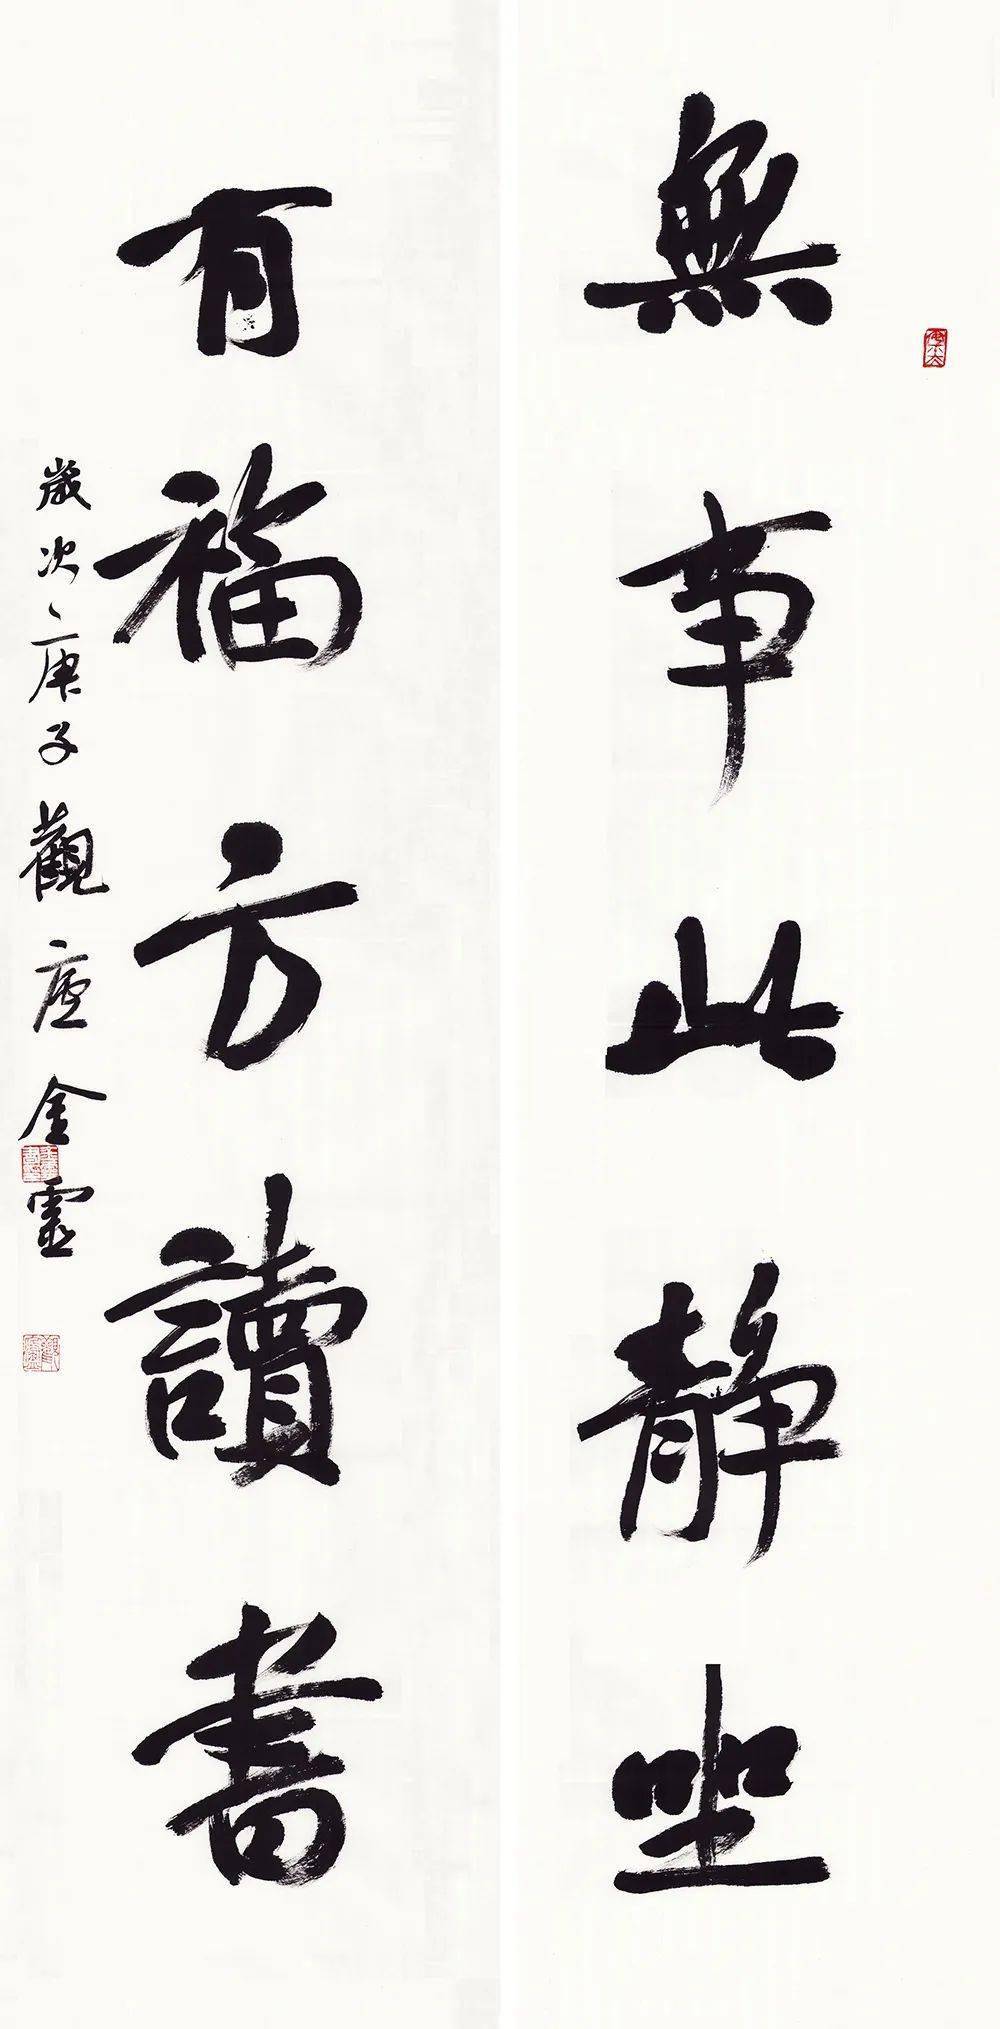 無事此靜坐
有福方讀書
歲次庚子觀廬金靈